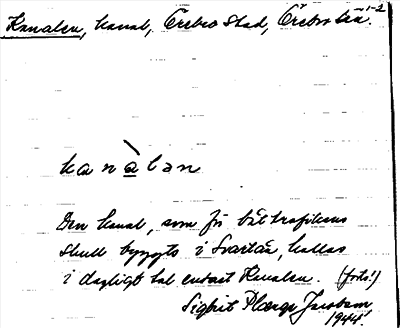 Kanalen, kanal, Örebro stad, Örebro län. 1-2
kanàlən
Den kanal, som för båttrafikens
skull byggts i Svartån, kallas
i dagligt tal endast Kanalen. (foto!)
Sigbrit Plænge Jacobson
1944.